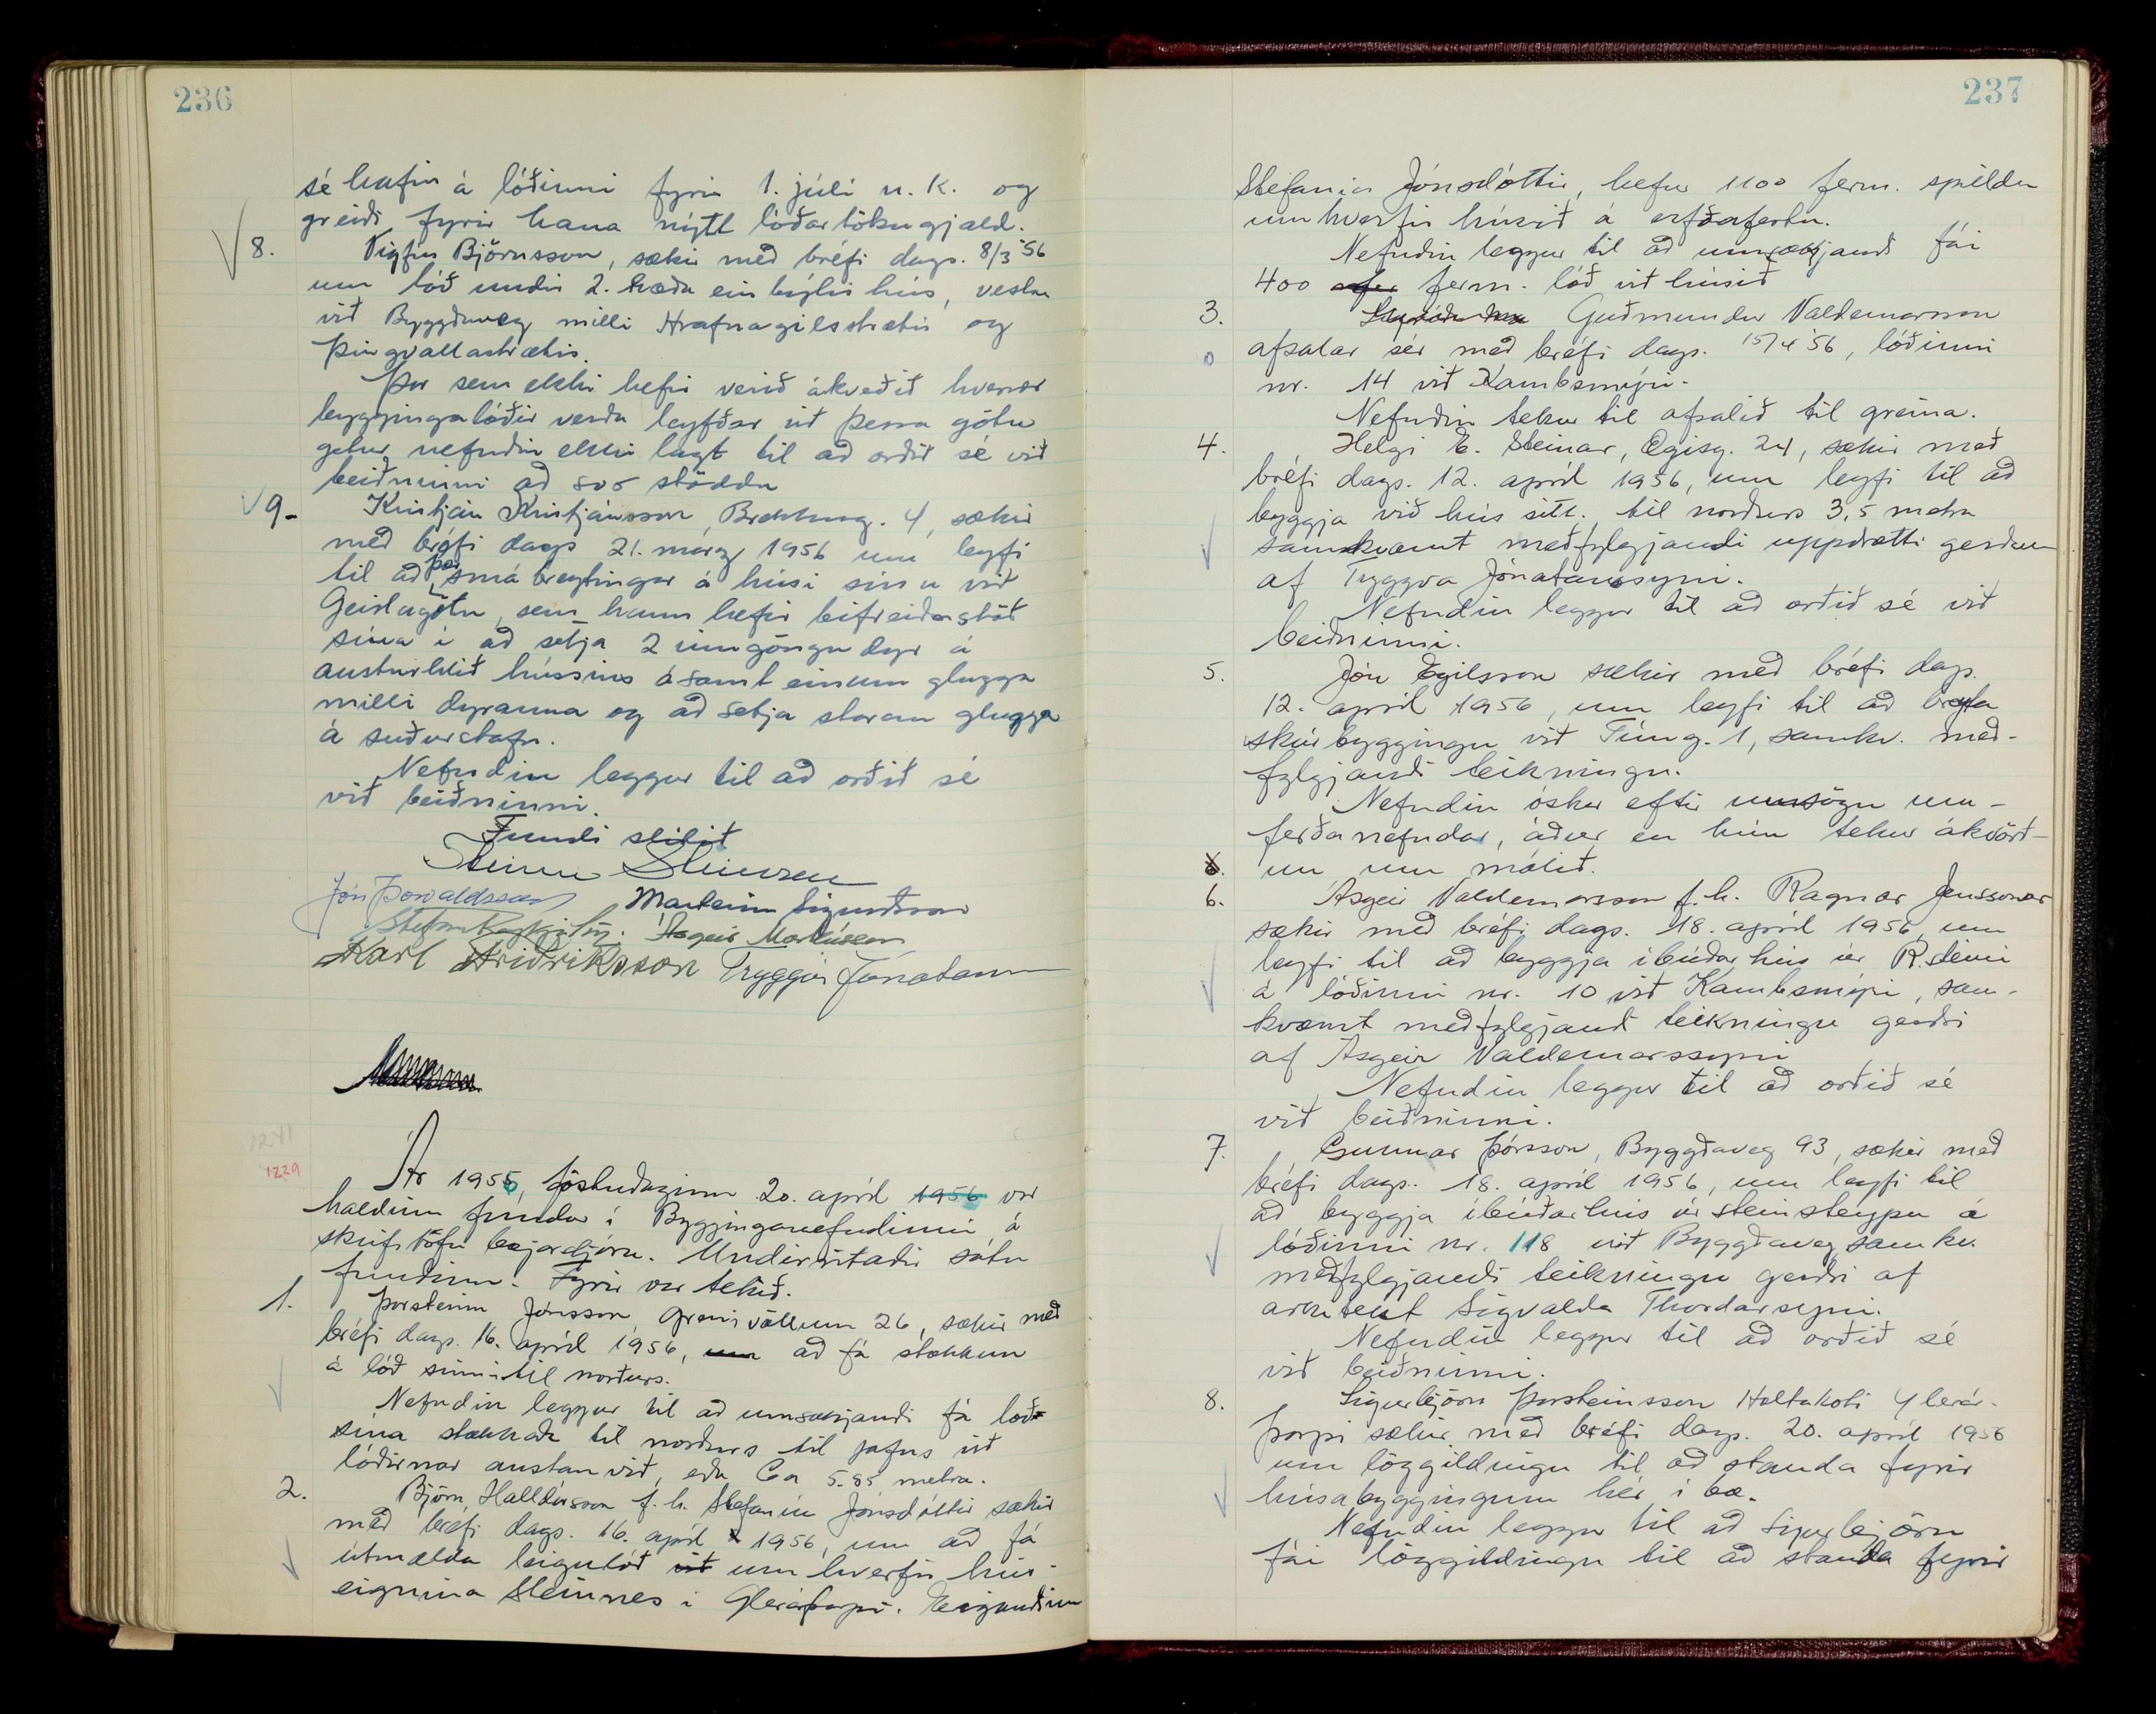 236
sé hafin á lóðinni fyrir 1. júlí n.k. og
greiði fyrir hana nýtt lóðartökugjald.
8. Vigfús Björnsson, sækir með bréfi dags. 8/3 '56
um lóð undir 2. hæða einbýlis hús, vestan
við Byggðaveg milli Hrafnagilsstrætis og
Þingvallastrætis.
Þar sem ekki hefir verið ákveðið hvernar
byggingalóðir verða leyfðar við þessa götu
getur nefndin ekki lagt til að orðið sé við
beiðninni að svo stöddu
9. Kristján Kristjánsson, Brekkug. 4, sækir
með bréfi dags 21. marz 1956 um leyfi
til að þær smá breytingar á húsi sínu við
Geislagötu, sem hann hefir bifreiðastöð
sína í að setja 2 inngöngu dyr á
austurhlið hússins ásamt einum glugga
milli dyranna og að setja stóran glugga
á suðurstafn.
Nefndin leggur til að orðið sé
við beiðninni.
Fundi slitið
Steinn Steinsen
Jón Þorvaldsson Marteinn Sigurðsson
Stefán Reykjalín. Ásgeir Markússon
Karl Friðriksson Tryggvi Jónatansson
1241
1229
Ár 1956, föstudaginn 20. apríl 1956 var
haldinn fundur í Bygginganefndinni á
skrifstofu bæjarstjóra. Undirritaðir sátu
fundinn. Fyrir var tekið.
1. Þorsteinn Jónsson, Grenivöllum 26, sækir með
bréfi dags. 16. apríl 1956, um að fá stækkun
á lóð sinni til norðurs.
Nefndin leggur til að umsækjandi fá lóð
sína stækkaða til norðurs til jafns við
lóðirnar austan við, eða Ca 5.85 metra.
2. Björn Halldórsson f.h. Stefaníu Jónsdóttir sækir
með bréfi dags. 16. apríl 1956, um að fá
útmælda leigulóð við umhverfis hús-
eignina Steinnes í Glerárþorpi. Eigandinn
237
Stefanía Jónsdóttir, hefur 1100 ferm. spildu
umhverfis húsið á erfðafestu.
Nefndin leggur til að umsækjandi fái
400 ferm. lóð við húsið
3. Guðmundur Valdemarsson
afsalar sér með bréfi dags. 15/4 '56, lóðinni
nr. 14 við Kambsmýri.
Nefndin tekur til afsalið til greina.
4. Helgi E. Steinar, Ægisg. 24, sækir með
bréfi dags. 12. apríl 1956, um leyfi til að
byggja við hús sitt. til norðurs 3,5 metra
samkvæmt meðfylgjandi uppdrætti gerðum
af Tryggva Jónatanssyni.
Nefndin leggur til að orðið sé við
beiðninni.
5. Jón Egilsson sækir með bréfi dags.
12. apríl 1956, um leyfi til að breyta
skúrbyggingu við Túng. 1, samkv. með-
fylgjandi teikningu.
Nefndin óskar eftir umsögn um-
ferðanefndar, áður en hún tekur ákvörð-
un um málið.
6. Ásgeir Valdemarsson f.h. Ragnar Jenssonar
sækir með bréfi dags. 18. apríl 1956, um
leyfi til að byggja íbúðarhús úr R.steini
á lóðinni nr. 10 við Kambsmýri, sam-
kvæmt meðfylgjandi teikningu gerðri
af Ásgeir Valdemarssyni
Nefndin leggur til að orðið sé
við beiðninni.
7. Gunnar Þórsson, Byggðaveg 93, sækir með
bréfi dags. 18. apríl 1956, um leyfi til
að byggja íbúðarhús úr steinsteypu á
lóðinni nr. 118 við Byggðaveg samkv.
meðfylgjandi teikningu gerðri af
arkitekt Sigvalda Thordarsyni.
Nefndin leggur til að orðið sé
við beiðninni.
8. Sigurbjörn Þorsteinsson Holtakoti Glerár-
þorpi sækir með bréfi dags. 20. apríl 1956
um löggildingu til að standa fyrir
húsabyggingum hér í bæ.
Nefndin leggur til að Sigurbjörn
fái löggildingu til að standa fyrir